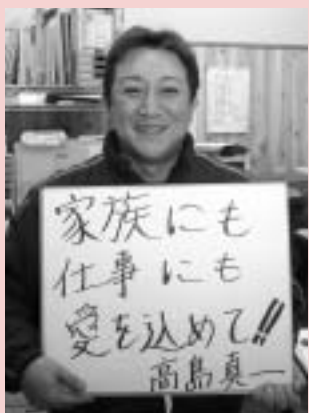 家族にも
仕事にも
愛を込めて!!
高島真一